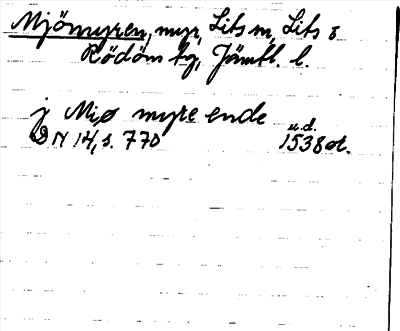 Mjömyren, myr, Lits sn, Lits o
Rödöns tg, Jämtl. l.
j Miø myre ende
DN 14, s. 770 u.d. 1538 ot.